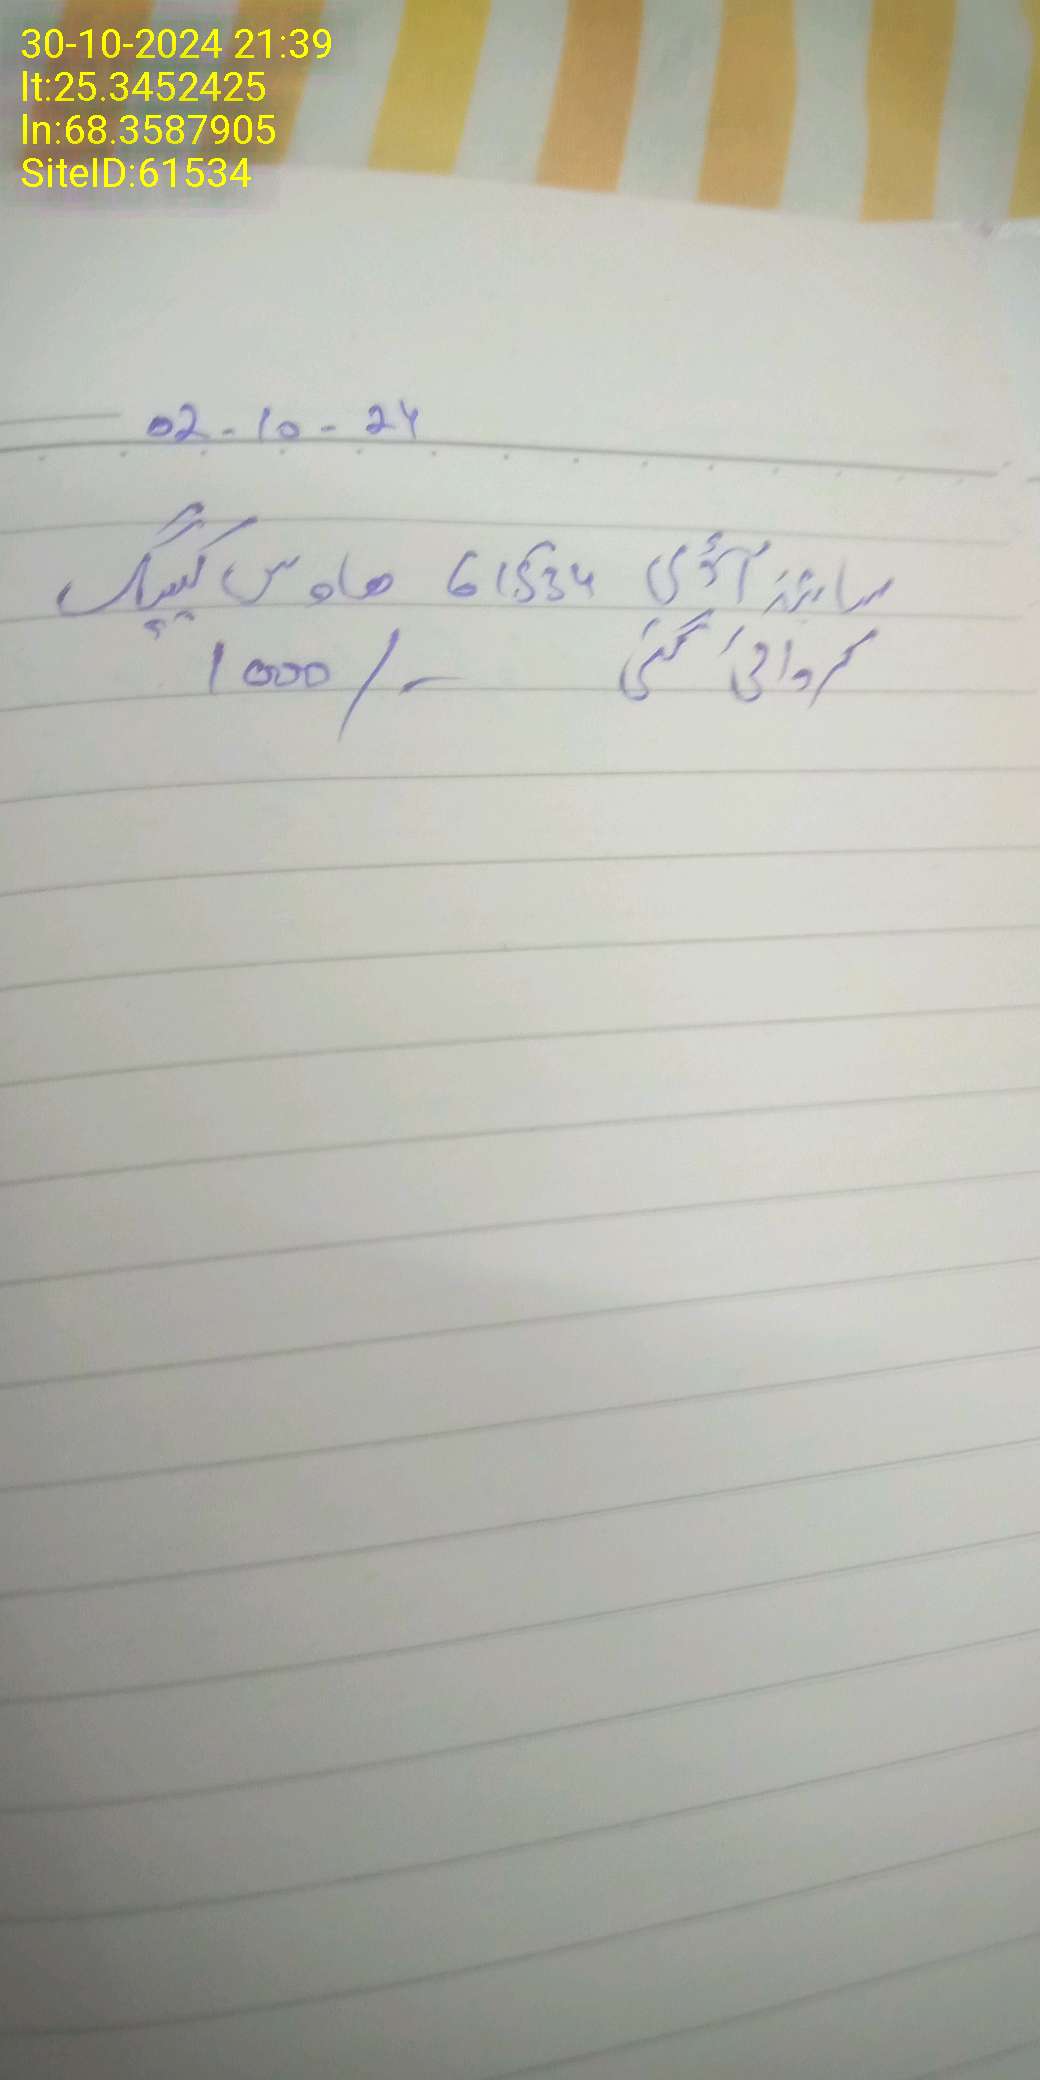 30-10-2024 21:39
lt:25.3452425
ln:68.3587905
SiteID:61534
02-10-24
سائٹ آئڈی 61534 ھاوس کیپنگ
کروائی گئی 1000/-